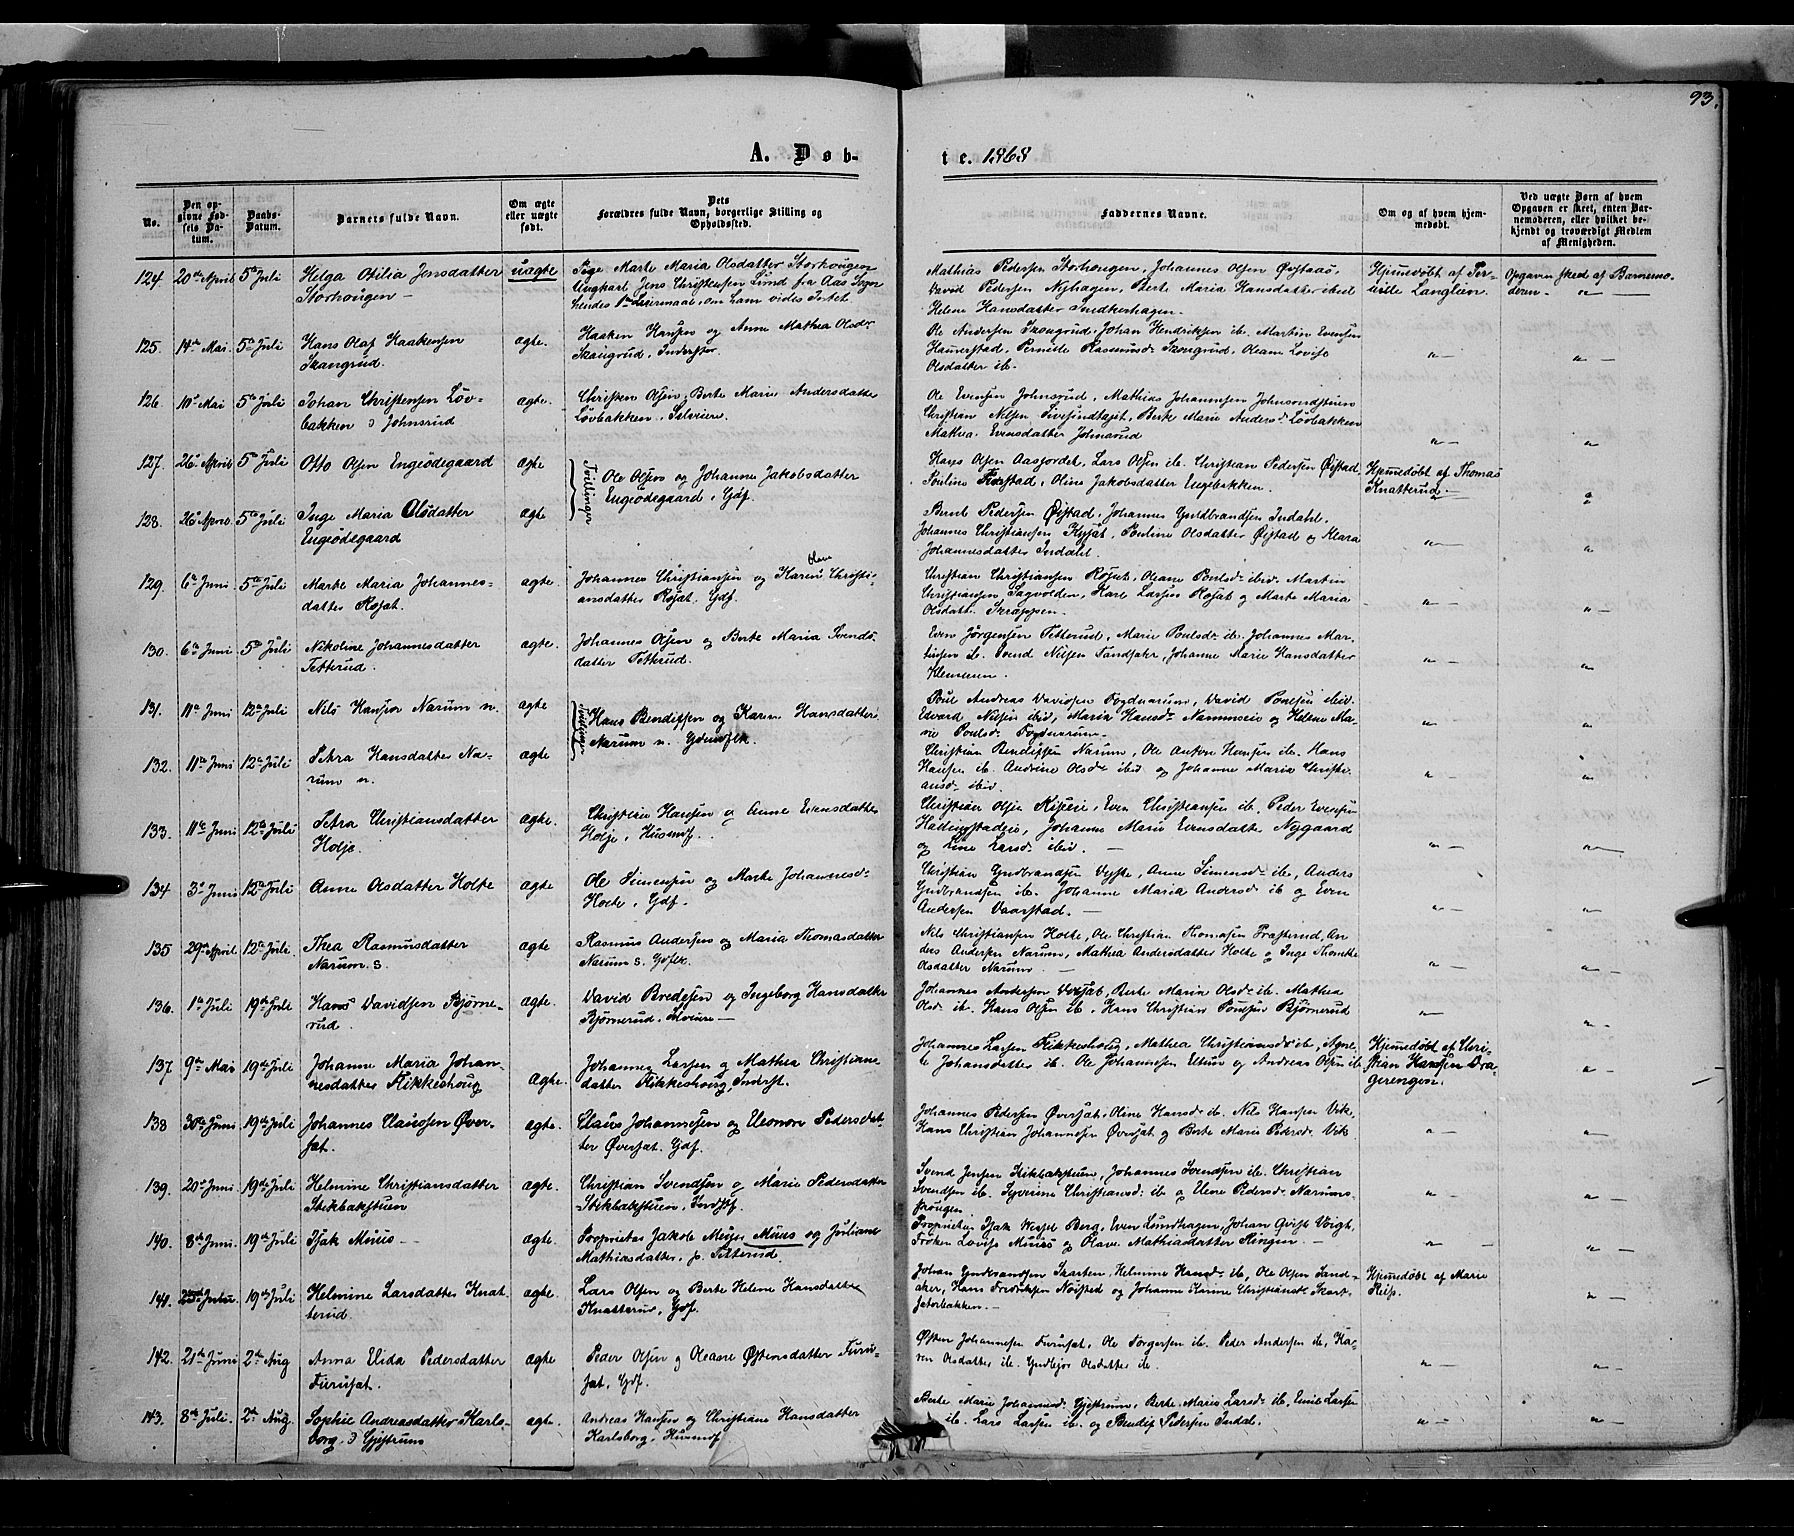 93.
A. Døb-
te. 1868
No.
Den op-
givne Fød-
sels Da-
tum.
Daabs-
Datum.
Barnets fulde Navn.
Om ægte
eller uægte
født.
Dets
Forældres fulde Navn, borgerlige Stilling og
Opholdssted.
Faddernes Navne.
Om og af hvem hjem-
medøbt.
Ved uægte Børn af hvem
Opgaven er skeet, enten Bar-
nemoderen, eller hvilket be-
kjendt og troværdigt Medlem
af Menigheden.
124. 20de April 5te Juli Helga Otilia Jensdatter
Storhougen –
uægte
Pige Marte Maria Olsdatter Storhougen
Ungkarl Jens Christensen Lund fra Aas
Mathias Pedersen Storhougen, Johannes Olsen Øistaas,
David Pedersen Nyhagen, Berte Maria Hansdatter ibid
Helene Hansdatter
Hjemmedøbt af
Langlien.
Opgaven skeed af Barnemo-
deren.
125. 14de Mai 5te Juli Hans Olaf Haakensen
Skangrud.
ægte.
Haaken Hansen og Anne Mathea Olsdr
Skangrud, Inderster
Ole Andersen Skongrud, Johan Hendriksen ib. Martin Evensen
Haugerstad, Pernille Rasmusd. Skongrud, Oleane Lovise
Olsdatter ib.
126. 10de Mai 5te Juli Johan Christensen Løv-
bakken s Johnsrud
ægte.
Christen Olsen, Berte Marie Andersdatter
Løvbakken, Selveiere
Ole Evensen Johnsrud, Mathias Johannesen Johnsrudstuen
Christian Nilsen, Berte Marie Andersd. Løvbakken
Mathea Evensdatter Johnsrud
127. 26de April 5te Juli Otto Olsen Engeødegaard
ægte
Tvillinger
Ole Olsen og Johanne Jakobsdatter
Engeødegaard, Gdf.
Hans Olsen Aasjordet, Lars Olsen ib. Christian Pedersen Øistad,
Pouline Fierstad, Oline Jakobsdatter Engebakken.
Hjemmedøbt af Thomas
Knatterud.
128. 26de April 5te Juli Inge Maria Olsdatter
Engeødegaard
ægte
Bernt Pedersen Øistad, Johannes Guldbrandsen Indahl,
Johannes Christiansen, Pouline Olsdatter Øistad og Klara
Johannesdatter Indahl.
129. 6te Juni 5te Juli Marte Maria Johannes-
datter Røsæt.
ægte.
Johannes Christiansen og Karen Oline Christi-
ansdatter Røsæt. Gdf.
Christian Christiansen Røsæt, Oleane Poulsd. ibid, Martin
Christiansen Sagvolden, Karl Larsen Røsæt og Marte Maria
Olsdatt. Skrappen.
130. 6te Juni 5te Juli Nikoline Johannesdatter
Tetterud.
ægte.
Johannes Olsen og Berte Maria Svends-
datter Tetterud.
Even Jørgensen Tetterud, Marie Poulsd. ib. Johannes Mar-
tinsen ib. Svend Nilsen, Johanne Marie Hansdatter
Klemmen.
131. 11te Juni 12te Juli Nils Hansen Narum n.
ægte
Tvillinger
Hans Bendixsen og Karen Hansdatter
Narum n. Gdmdflk.
Poul Andreas Davidsen Fogdnarum, David Poulsen ibid.
Edvard Nilsen ibid, Maria Hansd. og Helene Ma-
rie Poulsd. Fogdnarum.
132. 11te Juni 12te Juli Petra Hansdatter Na-
rum n.
ægte
Christian Bendixsen Narum, Ole Anton Hansen ib. Hans
Hansen ib. Andrine Olsd. ibid og Johanne Maria Christi-
ansd. ibid.
133. 11te Juni 12te Juli Petra Christiansdatter
Holje.
ægte.
Christian Hansen og Anne Evensdatter
Holje, Husmdf.
Christian Olsen, Even Christiansen ib. Peder Evensen
Johanne Marie Evensdatter Nygaard
og Line Larsd. ibid.
134 3de Juni 12te Juli Anne Olsdatter Holte
ægte
Ole Simensen og Marte Johannesd.
Holte, Gdf.
Christian Guldbrandsen, Anne Simensd. ib, Anders
Guldbrandsen ib. Johanne Maria Andersd. ib og Even
Andersen Vaarstad.
135 29de April 12te Juli Thea Rasmusdatter
Narum. s.
ægte
Rasmus Andersen og Maria Thomasdatter
Narum s. Gdflk.
Nils Christiansen Holte, Ole Christian Thomasen, An-
ders Andersen Narum, Mathea Andersdatter Holte og Inge
Olsdatter Narum
136. 1te Juli 19de Juli Hans Davidsen Bjørne-
rud.
ægte.
David Bredesen og Ingeborg Hansdatter
Bjørnerud. Selveiere –
Johannes Andersen, Berte Maria Olsd. ib. Mathea
Olsd. ib. Hans Olsen ib., Hans Christian Poulsen Bjørnerud
137 9de Mai 19de Juli Johanne Maria Johan-
nesdatter Fikkeshoug
ægte.
Johannes Larsen og Mathea Christians-
datter Fikkeshoug, Inderst.
Johannes Larsen Fikkeshoug, Mathea Christiansd. ib., Agne-
te Johansdatter ib. Ole Johannesen Elton og Andreas Olsen ib
Hjemmedøbt af Chri-
stian Hansen Dra-
gerengen.
138 30te Juni 19de Juli Johannes Claussen Øver-
sæt.
ægte.
Claus Johannesen og Eleonore Pedersdat-
ter Øversæt. Gdf.
Johannes Pedersen Øversæt, Oline Hansd. ib. Nils Hansen Vik,
Hans Christian Johannesen Øversæt og Berte Marie Pedersd. Vik
139. 20de Juni 19de Juli Helmine Christiansdatter
Stikbakstuen
ægte.
Christian Svendsen og Marie Pedersdatter
Stikbakstuen, Indstf.
Svend Jensen Stikbakstuen, Johannes Svendsen ib. Christian
Svendsen ib. Syverine Christiansd. ib og Elene Pedersd. Narums-
skougen.
140. 8de Juni. 19de Juli Isak Muus –
ægte.
Proprietær Jakob Meyer Muus og Juliane
Mathiasdatter, p. Tetterud.
Proprietær Isak Wessel Berg, Even Lundhagen, Johan Qvist Voigt,
Frøken Lovise Muus og Olave Mathiasdatter Ringen. –
141. 19de Juli Helmine Larsdatter Knat-
terud
ægte.
Lars Olsen og Berte Helene Hansdatter
Knatterud, Gdf.
Johan Guldbrandsen Skarten, Helmine Hansd. ib, Ole Olsen Sand-
aker, Hans Fredriksen Nøisted og Johanne Karine Christiansd.
Hjemmedøbt af Marie
142. 21de Juni 2den Aug Anna Elida Pedersdatter
Furusæt.
ægte
Peder Olsen og Oleane Østensdatter Furu-
sæt, Gdf.
Østen Johannesen Furusæt, Ole Torgersen ib. Peder Andersen ib, Ka-
ren Olsdatter ib. Olsdatter ib.
143. 8de Juli. 2den Aug. Sophie Andreasdatter Karls-
borg. s Gjestrum
ægte.
Andreas Hansen og Christiane Hansdatter
Karlsborg, Husmdf.
Berte Marie Johannesd. Gjestrum, Berte Maria Larsd. ib. Larsen
ib. Lars Larsen ib. og Bendix Pedersen Indal.